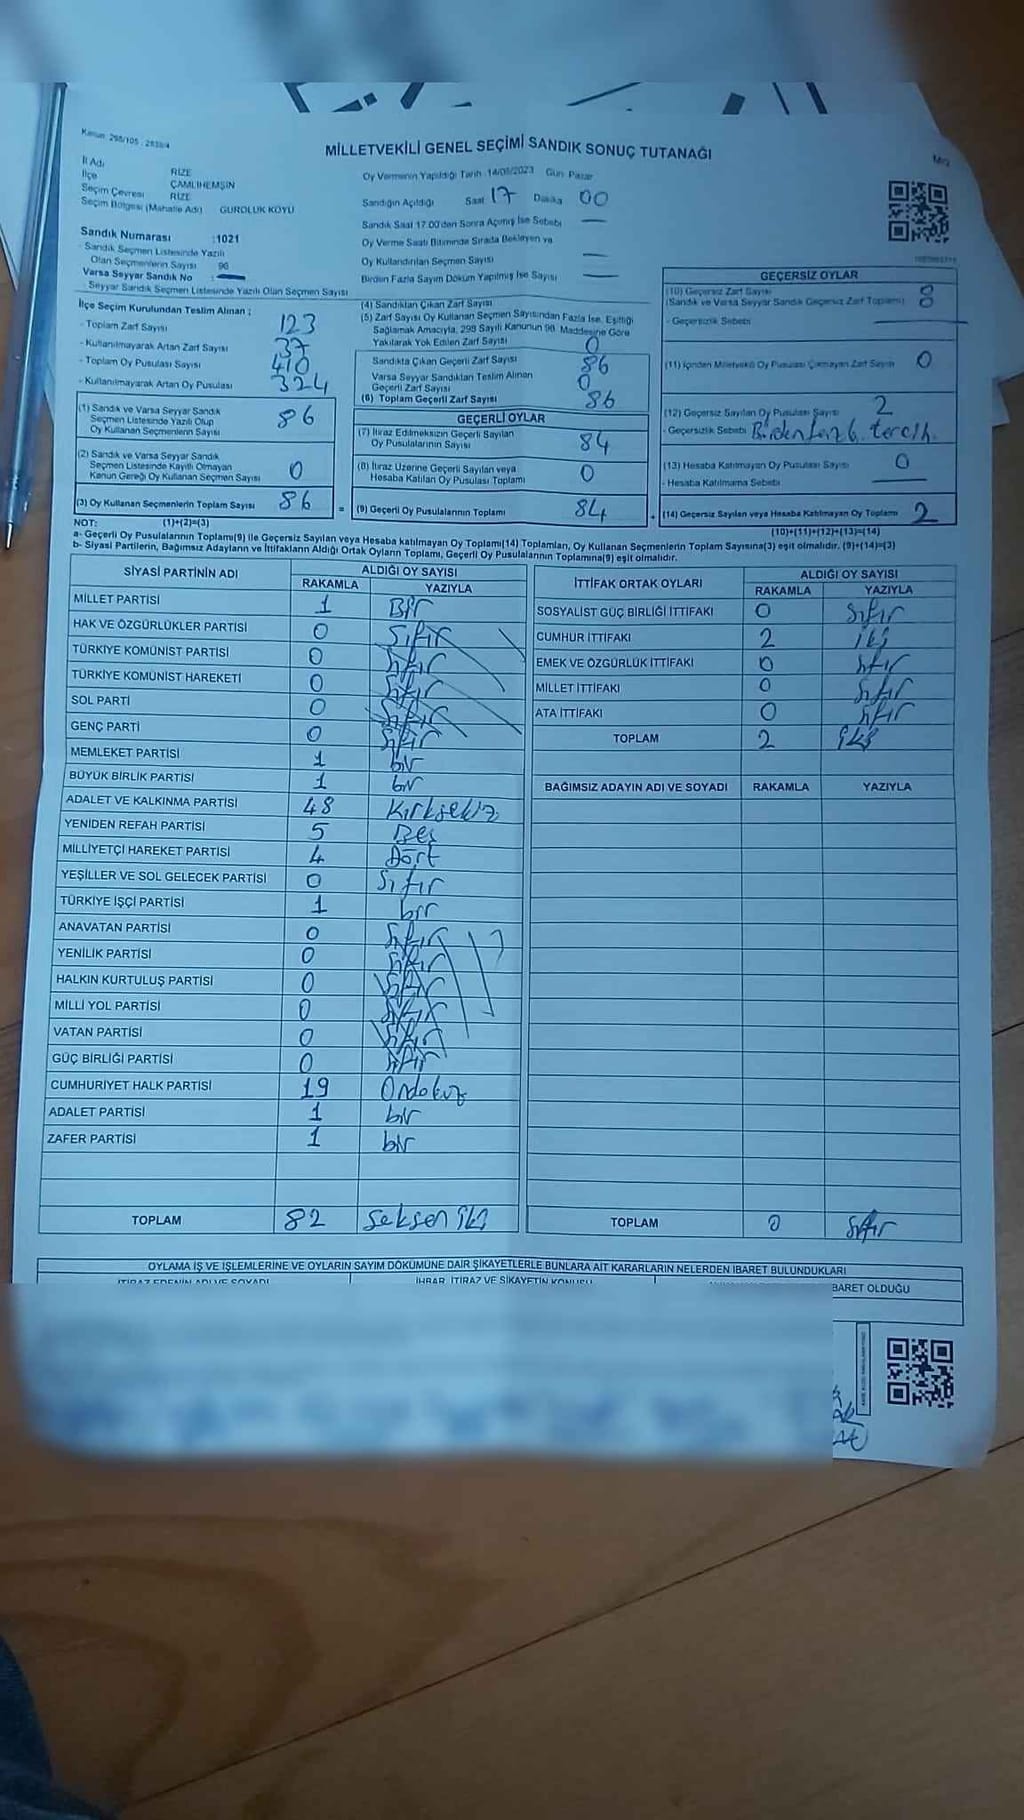 Kanun: 298/105 - 2839/4
MİLLETVEKİLİ GENEL SEÇİMİ SANDIK SONUÇ TUTANAĞI
İl Adı RİZE
İlçe ÇAMLIHEMŞİN
Seçim Çevresi RİZE
Seçim Bölgesi (Mahalle Adı) GÜROLUK KÖYÜ
Sandık Numarası :1021
- Sandık Seçmen Listesinde Yazılı
Olan Seçmenlerin Sayısı 96
Varsa Seyyar Sandık No : —
- Seyyar Sandık Seçmen Listesinde Yazılı Olan Seçmen Sayısı
Oy Vermenin Yapıldığı Tarih 14/05/2023 Gün: Pazar
Sandığın Açıldığı Saat 17 Dakika 00
Sandık Saat 17.00'den Sonra Açılmış İse Sebebi —
Oy Verme Saati Bitiminde Sırada Bekleyen ve
Oy Kullandırılan Seçmen Sayısı —
Birden Fazla Sayım Döküm Yapılmış İse Sayısı —
İlçe Seçim Kurulundan Teslim Alınan ;
- Toplam Zarf Sayısı 123
- Kullanılmayarak Artan Zarf Sayısı 37
- Toplam Oy Pusulası Sayısı 410
- Kullanılmayarak Artan Oy Pusulası 324
(1) Sandık ve Varsa Seyyar Sandık
Seçmen Listesinde Yazılı Olup
Oy Kullanan Seçmenlerin Sayısı 86
(2) Sandık ve Varsa Seyyar Sandık
Seçmen Listesinde Kayıtlı Olmayan
Kanun Gereği Oy Kullanan Seçmen Sayısı 0
(3) Oy Kullanan Seçmenlerin Toplam Sayısı 86 =
(4) Sandıktan Çıkan Zarf Sayısı
(5) Zarf Sayısı Oy Kullanan Seçmen Sayısından Fazla İse, Eşitliği
Sağlamak Amacıyla, 298 Sayılı Kanunun 98. Maddesine Göre
Yakılarak Yok Edilen Zarf Sayısı 0
Sandıkta Çıkan Geçerli Zarf Sayısı 86
Varsa Seyyar Sandıktan Teslim Alınan
Geçerli Zarf Sayısı 0
(6) Toplam Geçerli Zarf Sayısı 86
GEÇERLİ OYLAR
(7) İtiraz Edilmeksizin Geçerli Sayılan
Oy Pusulalarının Sayısı 84
(8) İtiraz Üzerine Geçerli Sayılan veya
Hesaba Katılan Oy Pusulası Toplamı 0
(9) Geçerli Oy Pusulalarının Toplamı 84 +
GEÇERSİZ OYLAR
(10) Geçersiz Zarf Sayısı
(Sandık ve Varsa Seyyar Sandık Geçersiz Zarf Toplamı)
- Geçersizlik Sebebi: —
(11) İçinden Milletvekili Oy Pusulası Çıkmayan Zarf Sayısı 0
(12) Geçersiz Sayılan Oy Pusulası Sayısı 2
- Geçersizlik Sebebi Birden fazla tercih.
(13) Hesaba Katılmayan Oy Pusulası Sayısı 0
- Hesaba Katılmama Sebebi —
(14) Geçersiz Sayılan veya Hesaba Katılmayan Oy Toplamı 2
NOT: (1)+(2)=(3) (10)+(11)+(12)+(13)=(14)
a- Geçerli Oy Pusulalarının Toplamı(9) ile Geçersiz Sayılan veya Hesaba katılmayan Oy Toplamı(14) Toplamları, Oy Kullanan Seçmenlerin Toplam Sayısına(3) eşit olmalıdır. (9)+(14)=(3)
b- Siyasi Partilerin, Bağımsız Adayların ve İttifakların Aldığı Ortak Oyların Toplamı, Geçerli Oy Pusulalarının Toplamına(9) eşit olmalıdır.
SİYASİ PARTİNİN ADI ALDIĞI OY SAYISI
RAKAMLA YAZIYLA
MİLLET PARTİSİ 1 Bir
HAK VE ÖZGÜRLÜKLER PARTİSİ 0 Sıfır
TÜRKİYE KOMÜNİST PARTİSİ 0 Sıfır
TÜRKİYE KOMÜNİST HAREKETİ 0 Sıfır
SOL PARTİ 0 Sıfır
GENÇ PARTİ 0 Sıfır
MEMLEKET PARTİSİ 1 bir
BÜYÜK BİRLİK PARTİSİ 1 bir
ADALET VE KALKINMA PARTİSİ 48 Kırksekiz
YENİDEN REFAH PARTİSİ 5 Beş
MİLLİYETÇİ HAREKET PARTİSİ 4 Dört
YEŞİLLER VE SOL GELECEK PARTİSİ 0 Sıfır
TÜRKİYE İŞÇİ PARTİSİ 1 bir
ANAVATAN PARTİSİ 0 Sıfır
YENİLİK PARTİSİ 0 Sıfır
HALKIN KURTULUŞ PARTİSİ 0 Sıfır
MİLLİ YOL PARTİSİ 0 Sıfır
VATAN PARTİSİ 0 Sıfır
GÜÇ BİRLİĞİ PARTİSİ 0 Sıfır
CUMHURİYET HALK PARTİSİ 19 Ondokuz
ADALET PARTİSİ 1 bir
ZAFER PARTİSİ 1 bir
TOPLAM 82 Seksen iki
İTTİFAK ORTAK OYLARI ALDIĞI OY SAYISI
RAKAMLA YAZIYLA
SOSYALİST GÜÇ BİRLİĞİ İTTİFAKI 0 Sıfır
CUMHUR İTTİFAKI 2 iki
EMEK VE ÖZGÜRLÜK İTTİFAKI 0 Sıfır
MİLLET İTTİFAKI 0 Sıfır
ATA İTTİFAKI 0 Sıfır
TOPLAM 2 iki
BAĞIMSIZ ADAYIN ADI VE SOYADI RAKAMLA YAZIYLA
TOPLAM 0 Sıfır
OYLAMA İŞ VE İŞLEMLERİNE VE OYLARIN SAYIM DÖKÜMÜNE DAİR ŞİKAYETLERLE BUNLARA AİT KARARLARIN NELERDEN İBARET BULUNDUKLARI
İTİRAZ EDENİN ADI VE SOYADI İHBAR, İTİRAZ VE ŞİKAYETİN KONUSU BARET OLDUĞU